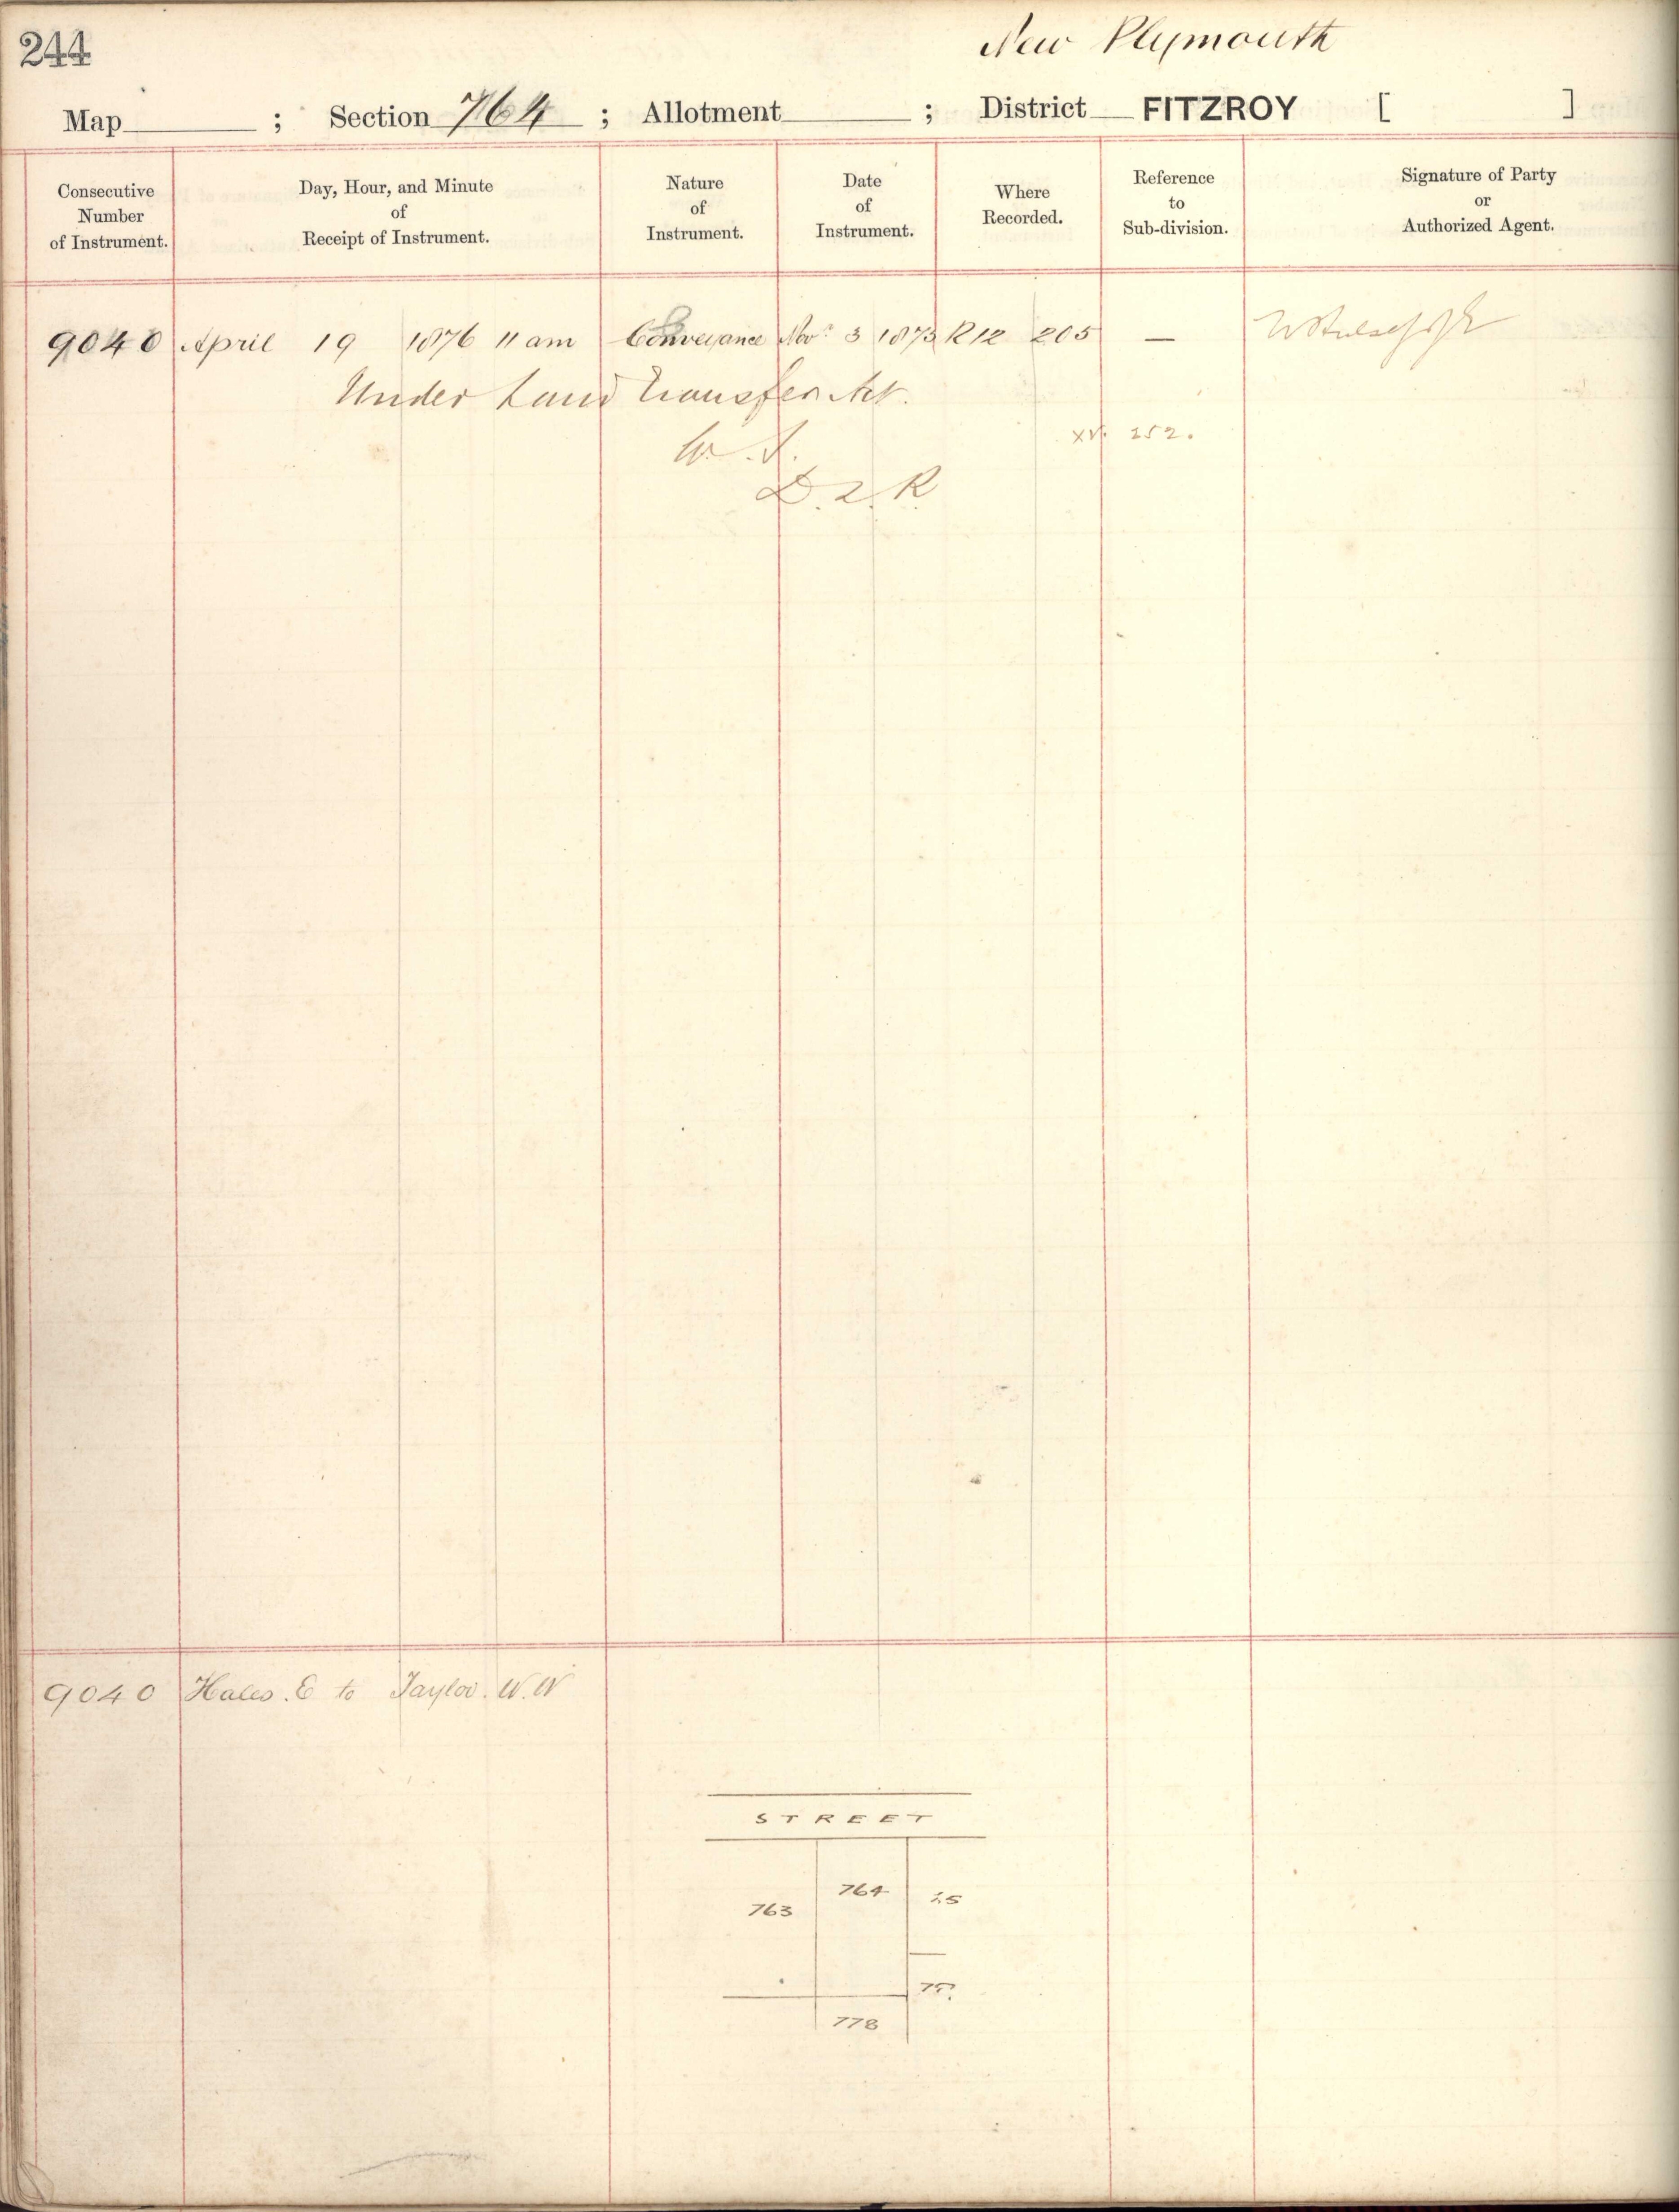 244
New Plymouth
Map ; Section 764 ; Allotment ; District FITZROY [ ]
Consecutive Number of Instrument.
Day, Hour, and Minute of Receipt of Instrument.
Nature of Instrument.
Date of Instrument.
Where Recorded.
Reference to Sub-division.
Signature of Party or Authorized Agent.
9040 April 19 1876 11 am Conveyance Novr 3 1873 R12 205 —
Under Land Transfer Act.
XV. 252.
D.L.R.
9040 Hales. E to Taylor. W.W
STREET
764
763
25
778